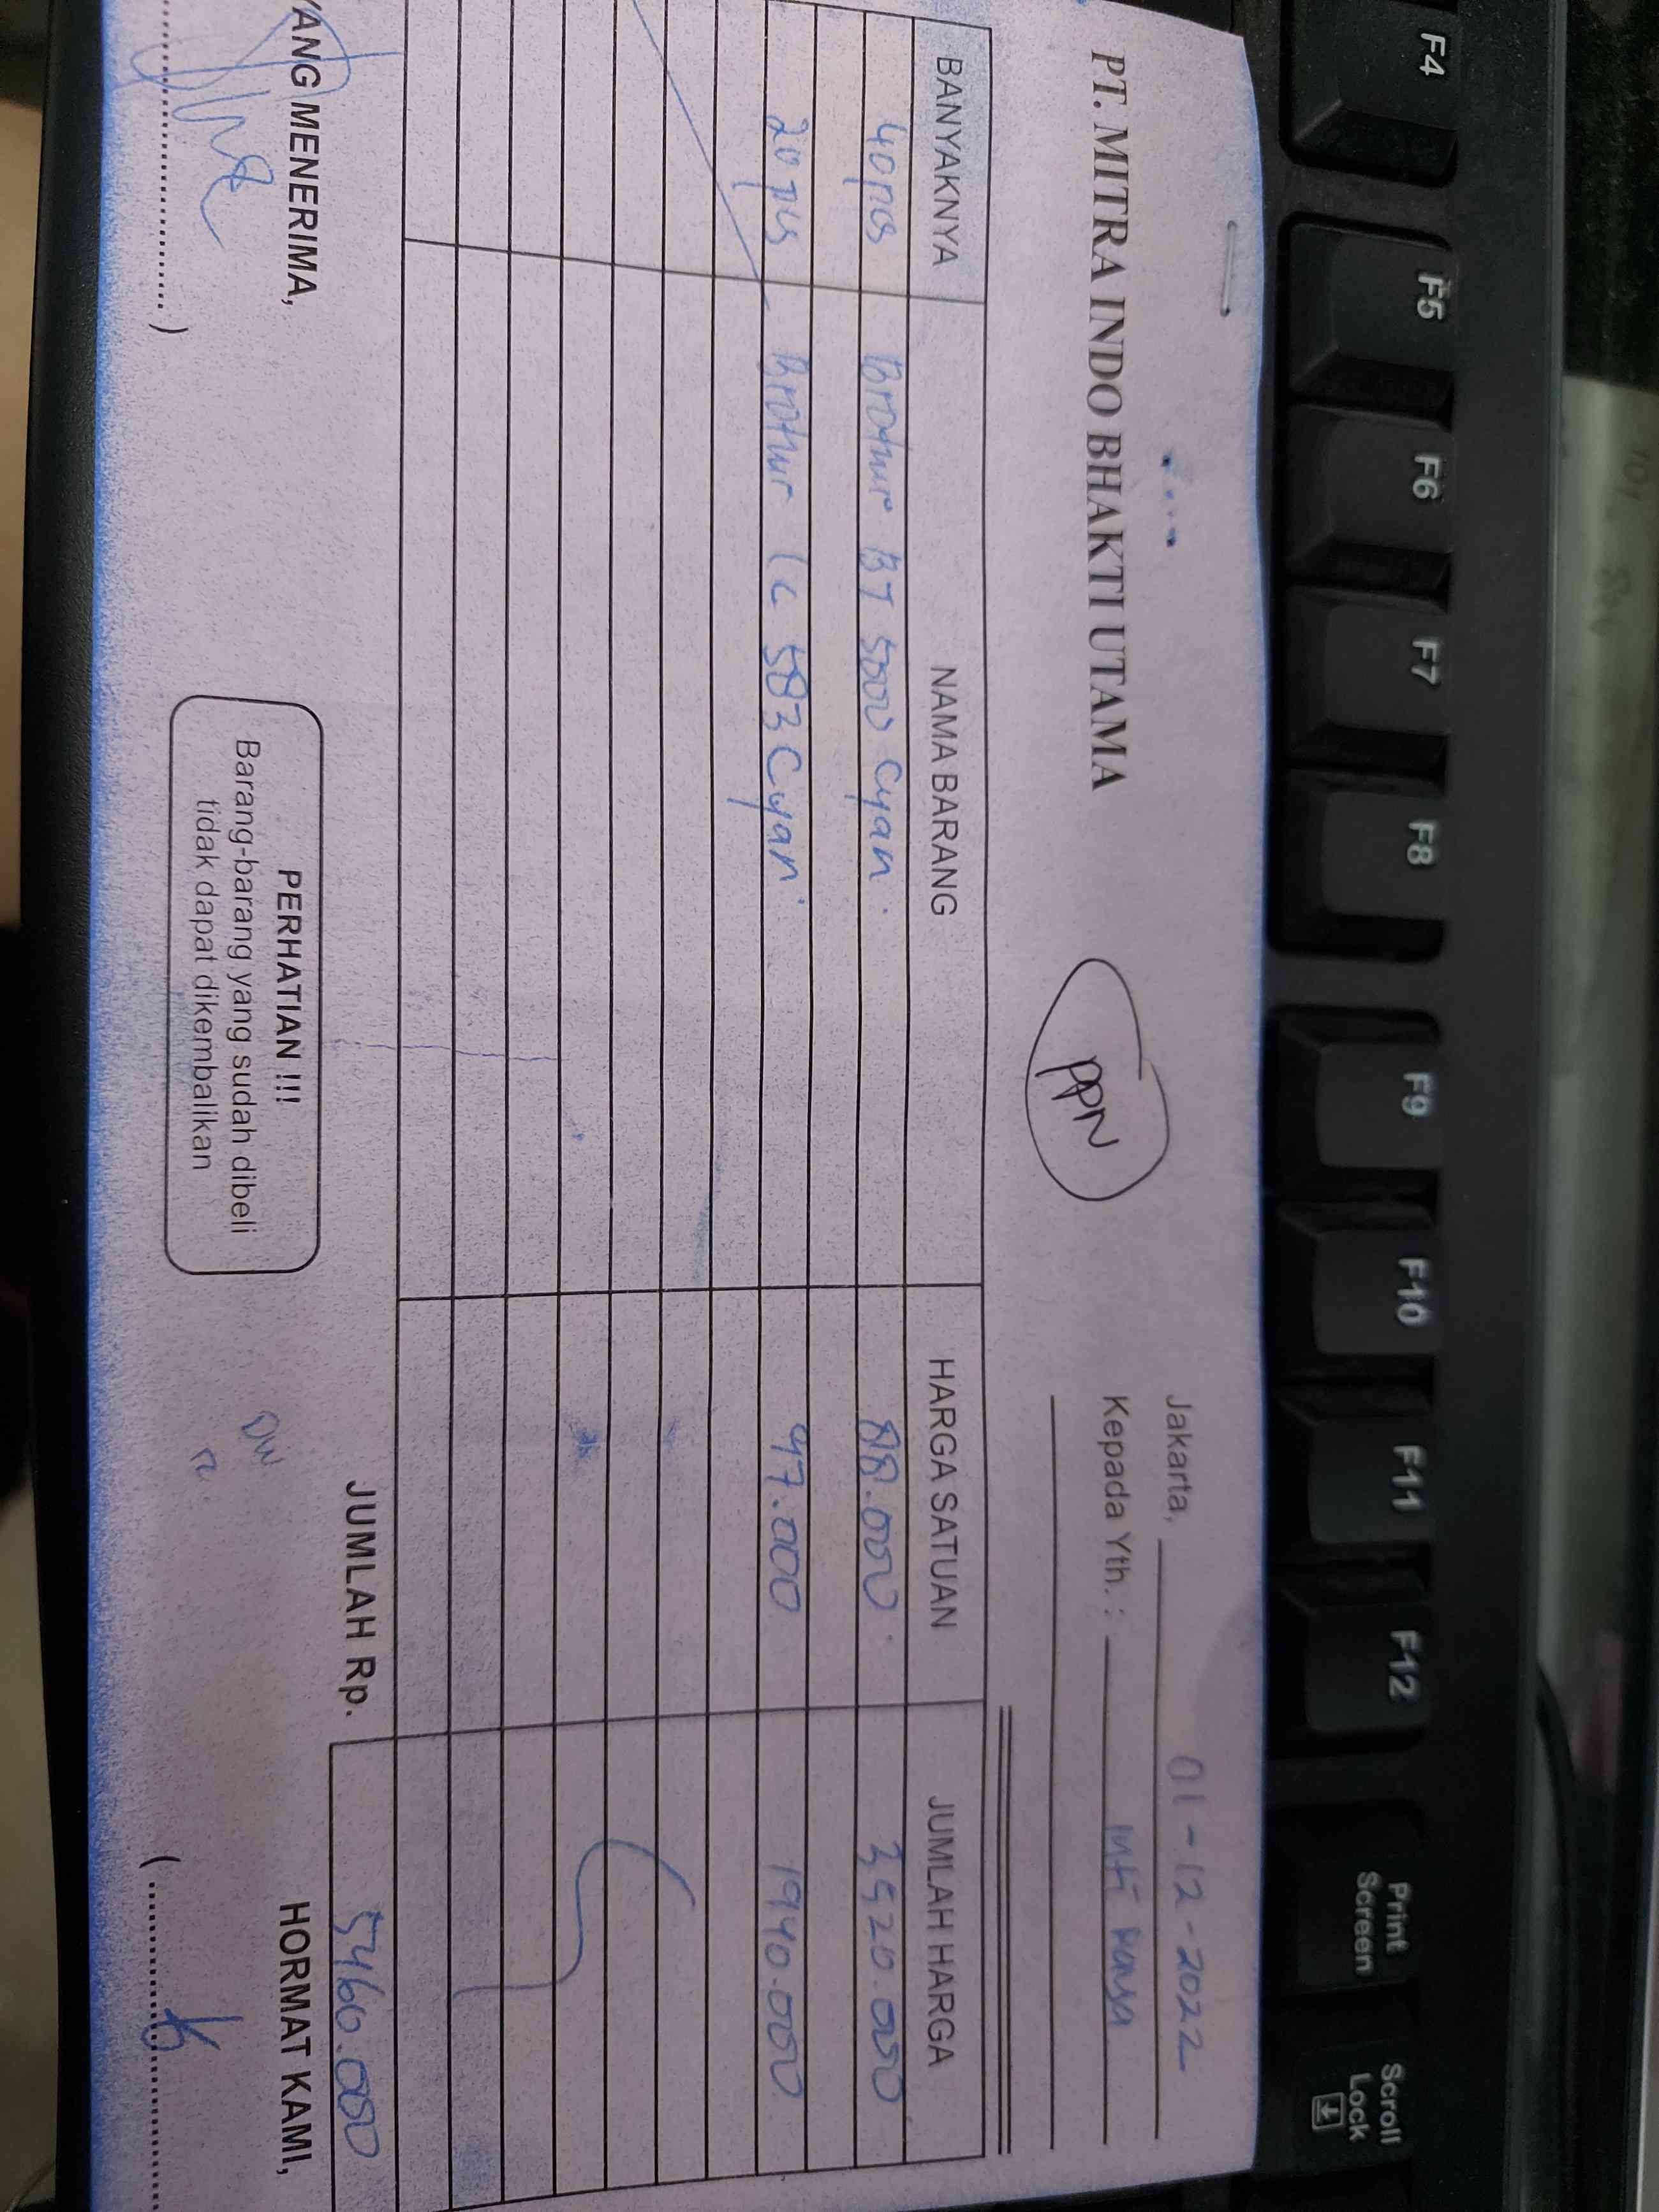 F4 F5 F6 F7 F8 F9 F10 F11 F12 Print Screen Scroll Lock
PT. MITRA INDO BHAKTI UTAMA
PPN
Jakarta, 01-12-2022
Kepada Yth. : Inti Daya
BANYAKNYA NAMA BARANG HARGA SATUAN JUMLAH HARGA
40 pcs Brother BT 5000 Cyan. 88.000 3520.000
20 pcs Brother LC 583 Cyan 97.000 1940.000
JUMLAH Rp. 5460.000
YANG MENERIMA,
PERHATIAN !!!
Barang-barang yang sudah dibeli
tidak dapat dikembalikan
HORMAT KAMI,